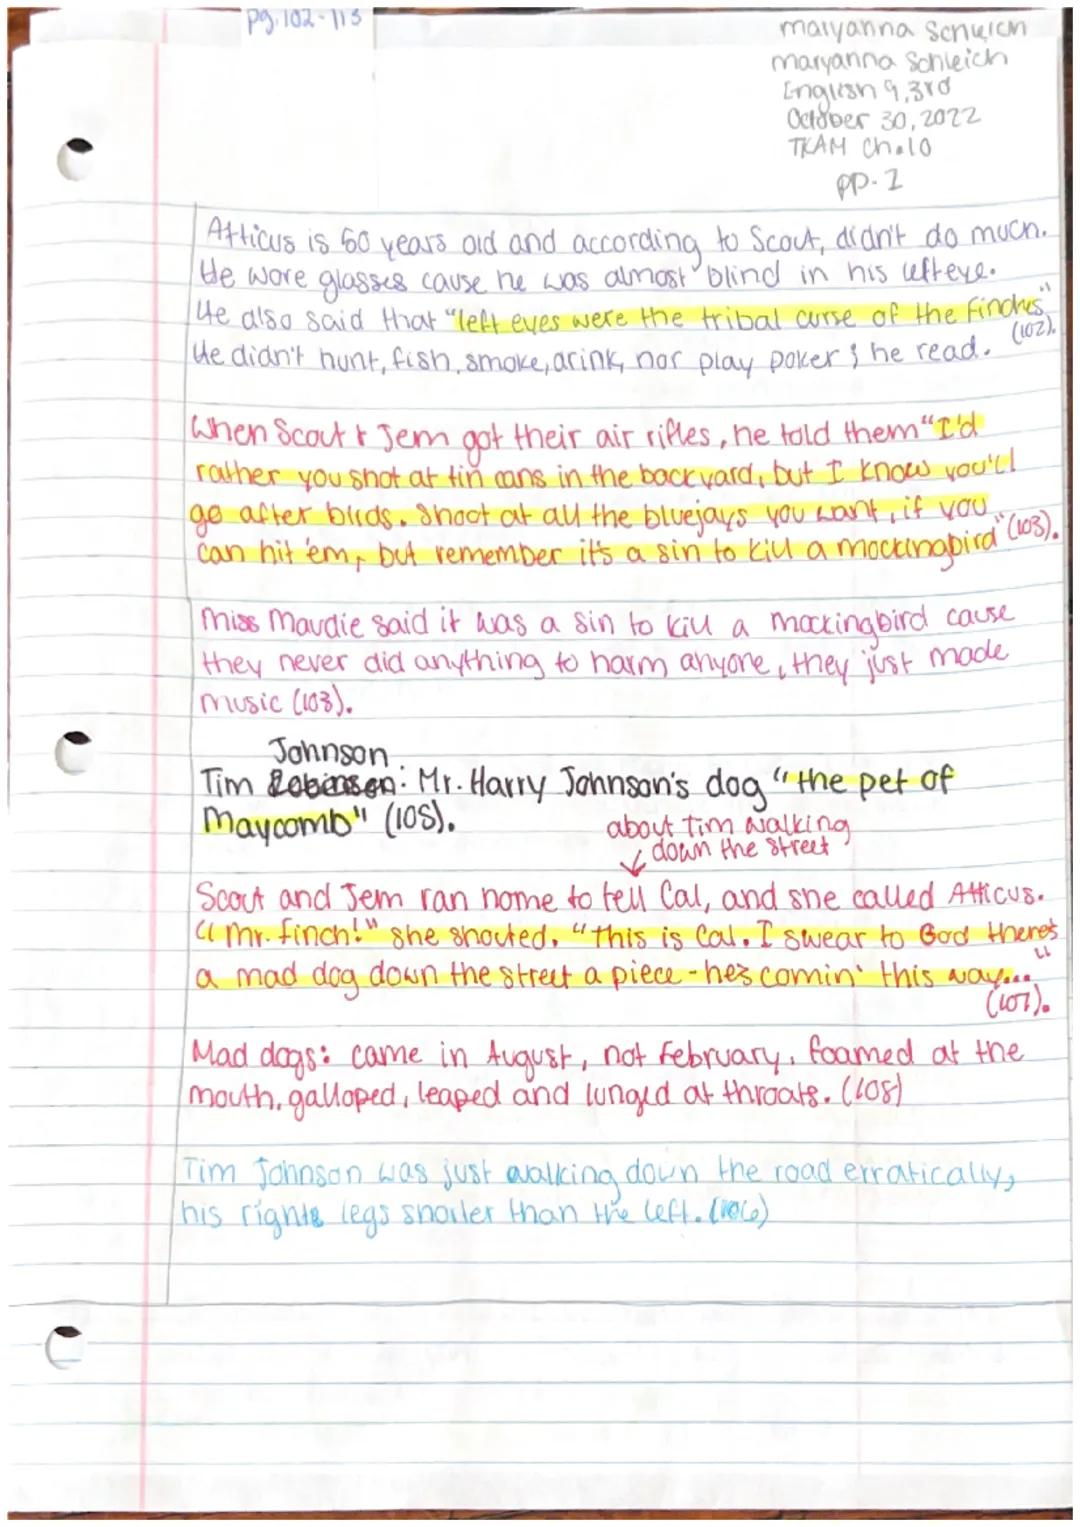 pg. 102-113
maryanna Schleich
maryanna Schleich
English 9, 3rd
October 30, 2022
TKAM Ch. 10
pp. 2
Atticus is 50 years old and according to Scout, didn't do much.
He wore glasses cause he was almost blind in his left eye.
He also said that "left eyes were the tribal curse of the Finches"
(102).
He didn't hunt, fish, smoke, drink, nor play poker; he read.
When Scout & Jem got their air rifles, he told them "I'd
rather you shot at tin cans in the backyard, but I know you'll
go after birds. Shoot at all the bluejays you want, if you
can hit 'em, but remember it's a sin to kill a mockingbird" (103).
Miss Maudie said it was a sin to kill a mockingbird cause
they never did anything to harm anyone, they just made
music (103).
Johnson
Tim Robinson: Mr. Harry Johnson's dog "the pet of
Maycomb" (105).
about Tim walking
down the street
Scout and Jem ran home to tell Cal, and she called Atticus.
"Mr. Finch!" she shouted. "This is Cal. I swear to God there's
a mad dog down the street a piece - he's comin' this way..."
(107).
Mad dogs: came in August, not February. foamed at the
mouth, galloped, leaped and lunged at throats. (108)
Tim Johnson was just walking down the road erratically,
his right legs shorter than the left. (106)